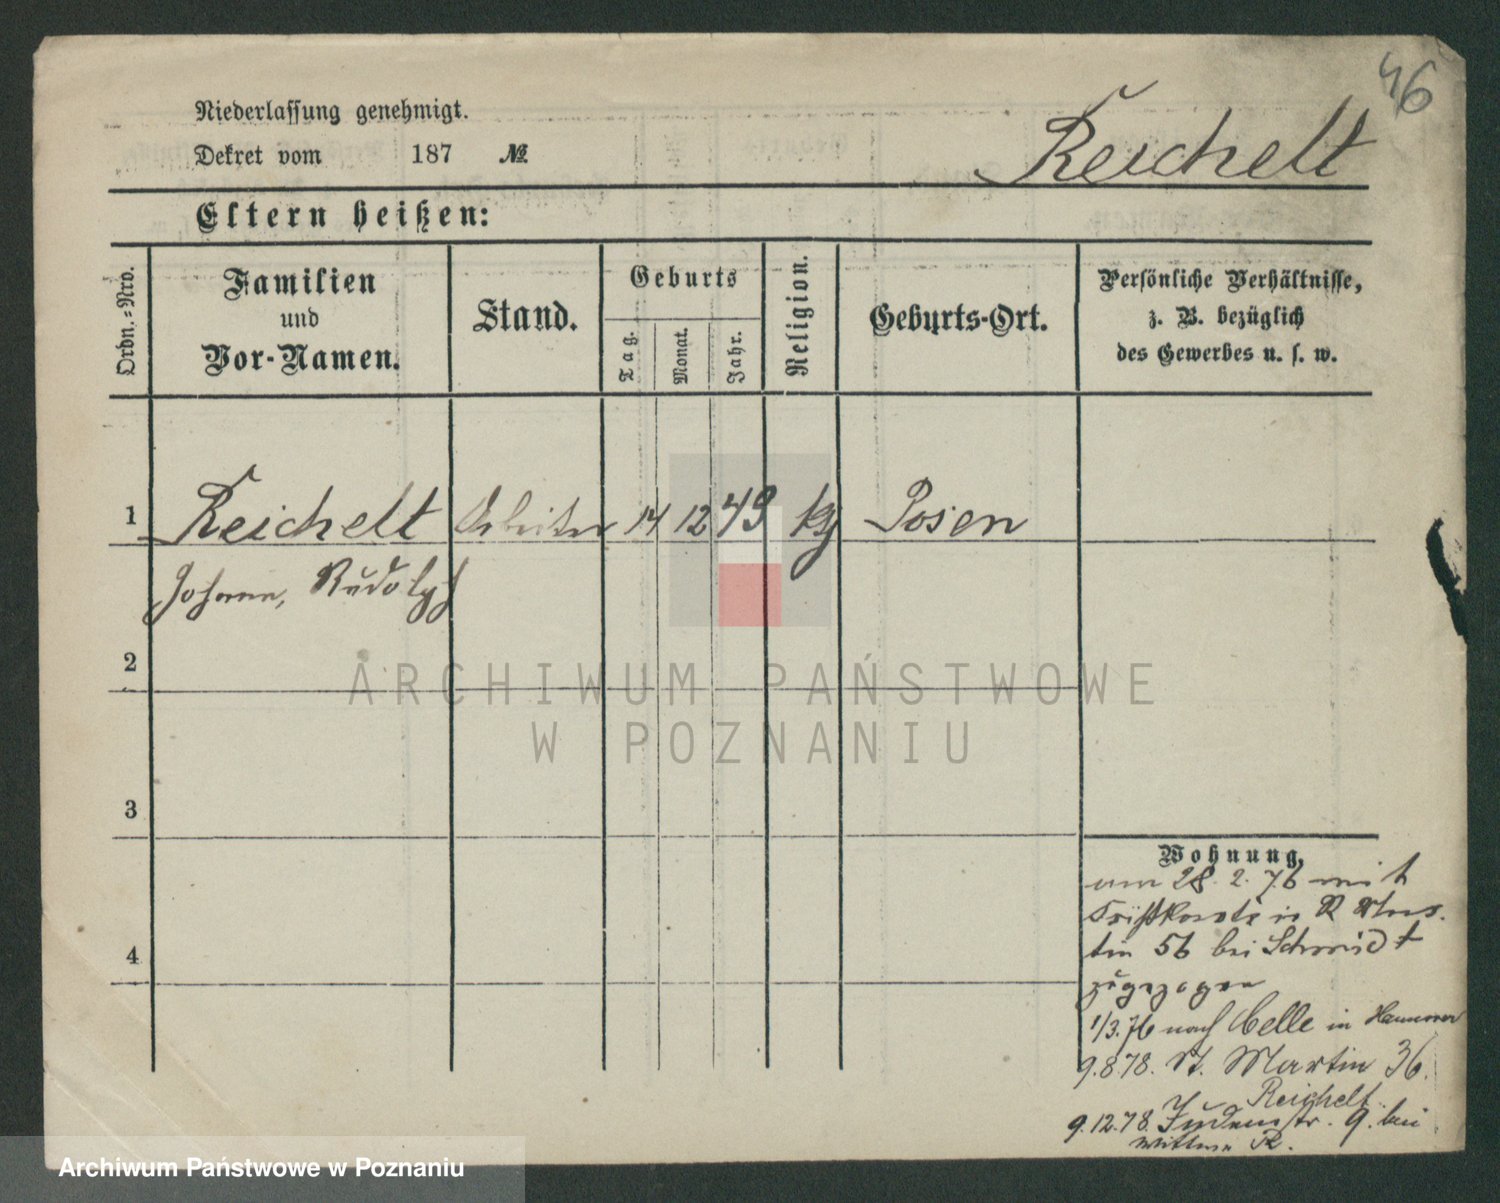 46
Niederlassung genehmigt.
Dekret vom 187 №
Reichelt
Eltern heißen:
Ordn.=Nro.
Familien
und
Vor-Namen.
Stand.
Geburts
Tag.
Monat.
Jahr.
Religion.
Geburts-Ort.
Persönliche Verhältnisse,
z. B. bezüglich
des Gewerbes u. s. w.
1 Reichelt Arbeiter 14 12 49 Posen
Johann, Rudolph
2
3
4
Wohnung,
am 28. 2. 76 mit
in
56 bei Schmidt
zugezogen
1/3.76 nach Celle in Hannover
9.8.78. St. Martin 36.
Reichelt
9.12.78. Judenstr. 9. bei
R.
ARCHIWUM PAŃSTWOWE
W POZNANIU
Archiwum Państwowe w Poznaniu